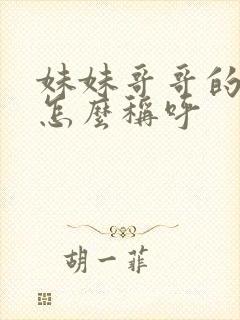 妹妹哥哥的
怎麼稱呼
胡一菲